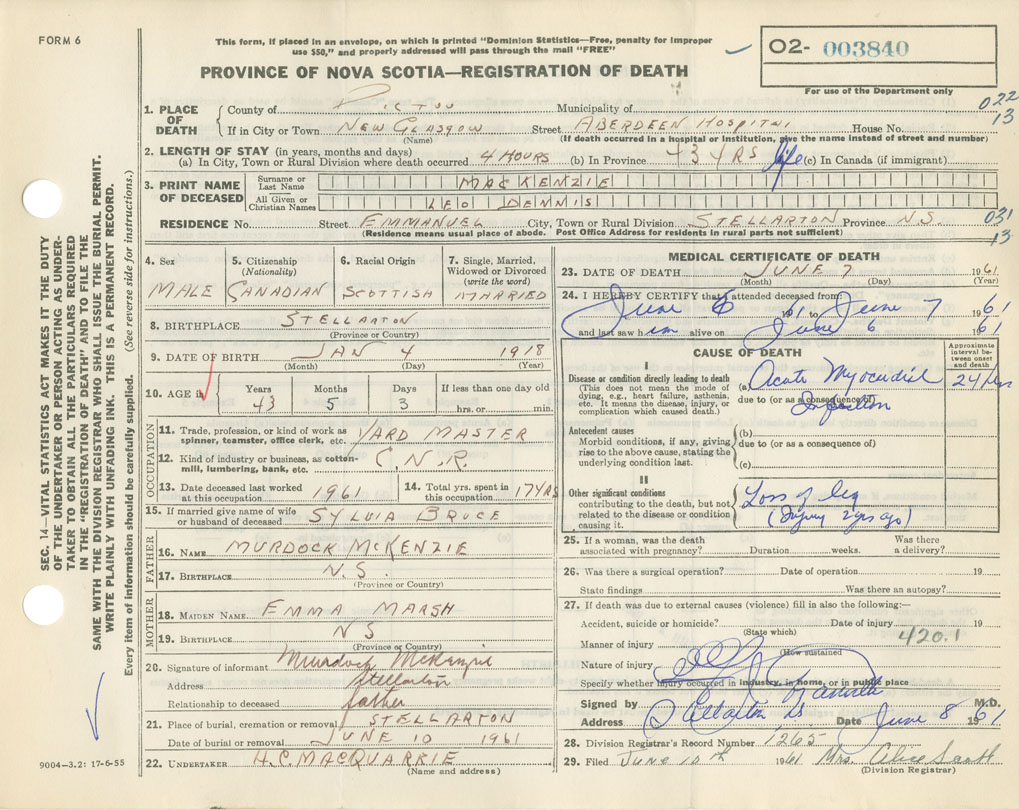 FORM 6
This form, if placed in an envelope, on which is printed "Dominion Statistics—Free, penalty for improper
use $50," and properly addressed will pass through the mail "FREE"
O2- 003840
For use of the Department only
PROVINCE OF NOVA SCOTIA—REGISTRATION OF DEATH
022
13
1. PLACE OF DEATH
County of Pictou Municipality of
If in City or Town New Glasgow Street Aberdeen Hospital House No.
(Name) (If death occurred in a hospital or institution, give the name instead of street and number)
2. LENGTH OF STAY (in years, months and days)
(a) In City, Town or Rural Division where death occurred 4 Hours (b) In Province 43 yrs life (c) In Canada (if immigrant)
3. PRINT NAME OF DECEASED
Surname or Last Name MACKENZIE
All Given or Christian Names LEO DENNIS
RESIDENCE No. Street Emmanuel City, Town or Rural Division Stellarton Province N.S.
(Residence means usual place of abode. Post Office Address for residents in rural parts not sufficient)
031
13
4. Sex
MALE
5. Citizenship
(Nationality)
CANADIAN
6. Racial Origin
SCOTTISH
7. Single, Married,
Widowed or Divorced
(write the word)
MARRIED
8. BIRTHPLACE STELLARTON
(Province or Country)
9. DATE OF BIRTH JAN 4 1918
(Month) (Day) (Year)
10. AGE in
Years 43
Months 5
Days 3
If less than one day old
hrs. or min.
OCCUPATION
11. Trade, profession, or kind of work as
spinner, teamster, office clerk, etc. YARD MASTER
12. Kind of industry or business, as cotton-
mill, lumbering, bank, etc. C.N.R.
13. Date deceased last worked
at this occupation 1961
14. Total yrs. spent in
this occupation 17 YRS
15. If married give name of wife
or husband of deceased SYLVIA BRUCE
FATHER
16. NAME MURDOCK MCKENZIE
17. BIRTHPLACE N.S.
(Province or Country)
MOTHER
18. MAIDEN NAME EMMA MARSH
19. BIRTHPLACE N S
(Province or Country)
20. Signature of informant Murdock McKenzie
Address Stellarton
Relationship to deceased father
21. Place of burial, cremation or removal STELLARTON
Date of burial or removal JUNE 10 1961
22. UNDERTAKER H.C. MACQUARRIE
(Name and address)
MEDICAL CERTIFICATE OF DEATH
23. DATE OF DEATH JUNE 7 1961
(Month) (Day)
24. I HEREBY CERTIFY that I attended deceased from
June 6 1961 to June 7 1961
and last saw him alive on June 6 1961
CAUSE OF DEATH
Approximate
interval be-
tween onset
and death
I
Disease or condition directly leading to death
(This does not mean the mode of
dying, e.g., heart failure, asthenia,
etc. It means the disease, injury, or
complication which caused death.)
(a) Acute Myocardial 24 hrs
due to (or as a consequence of)
Infarction
Antecedent causes
Morbid conditions, if any, giving
rise to the above cause, stating the
underlying condition last.
(b)
due to (or as a consequence of)
(c)
II
Other significant conditions
contributing to the death, but not
related to the disease or condition
causing it.
Loss of leg
(Injury 2 yrs ago)
25. If a woman, was the death
associated with pregnancy? Duration weeks. Was there
a delivery?
26. Was there a surgical operation? Date of operation 19
State findings Was there an autopsy?
27. If death was due to external causes (violence) fill in also the following:—
Accident, suicide or homicide? Date of injury 19
(State which)
420.1
Manner of injury
(How sustained
Nature of injury
Specify whether injury occurred in industry, in home, or in public place
Signed by M.D.
Address Stellarton NS Date June 8 1961
28. Division Registrar's Record Number 1265
29. Filed June 10th 1961 Mrs. Alice Scott
(Division Registrar)
SEC. 14—VITAL STATISTICS ACT MAKES IT THE DUTY
OF THE UNDERTAKER OR PERSON ACTING AS UNDER-
TAKER TO OBTAIN ALL THE PARTICULARS REQUIRED
IN THE "REGISTRATION OF DEATH" AND TO FILE THE
SAME WITH THE DIVISION REGISTRAR WHO SHALL ISSUE THE BURIAL PERMIT.
WRITE PLAINLY WITH UNFADING INK. THIS IS A PERMANENT RECORD.
Every item of information should be carefully supplied. (See reverse side for instructions.)
9004—3.2: 17-6-55